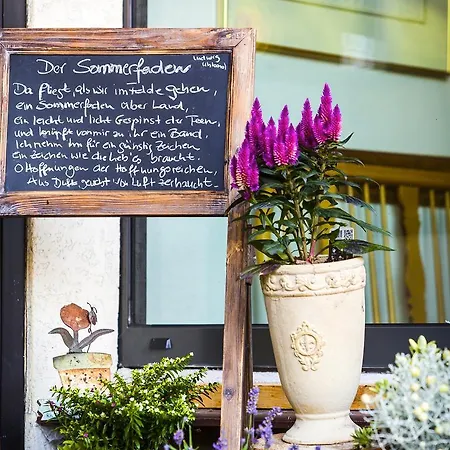 Der Sommerfaden
Ludwig
Uhland
Da fliegt, als wir im Felde gehen,
ein Sommerfaden über Land,
ein leicht und licht Gespinst der Feen,
und knüpft von mir zu ihr ein Band.
Ich nehm ihn für ein günstig Zeichen
ein Zeichen wie die Lieb es braucht.
O Hoffnungen der Hoffnungsreichen,
Aus Duft gewebt von Luft zerhaucht